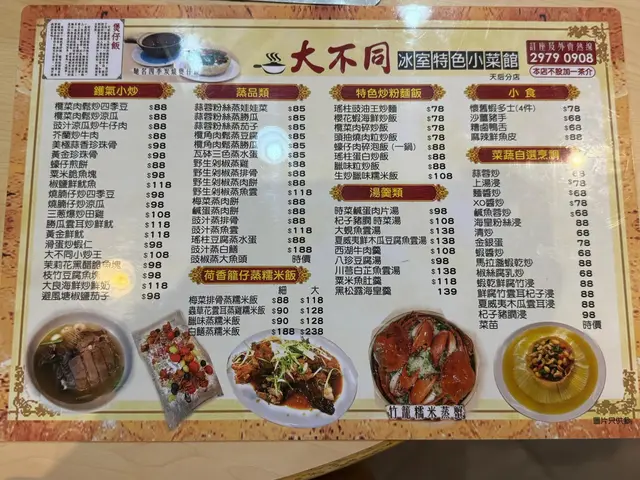 煲仔飯
大不同
冰室特色小菜館
天后分店
訂座及外賣熱線
2979 0908
本店不設加一茶介
鑊氣小炒
欖菜肉鬆炒四季豆 $88
欖菜肉鬆炒涼瓜 $88
豉汁涼瓜炒牛仔肉 $88
芥蘭炒牛肉 $88
美極蒜香珍珠骨 $98
黃金珍珠骨 $98
蠔仔煎餅 $88
粟米脆魚塊 $98
椒鹽鮮魷魚 $118
燒腩仔炒四季豆 $98
燒腩仔炒涼瓜 $98
三蔥爆炒田雞 $108
勝瓜雲耳炒鮮魷 $118
黃金鮮魷 $118
滑蛋炒蝦仁 $98
大不同小炒王 $108
茉莉花黑醋脆魚塊 $98
枝竹豆腐魚炆 $98
大良海鮮炒鮮奶 $118
避風塘椒鹽茄子 $98
蒸品類
蒜蓉粉絲蒸娃娃菜 $85
蒜蓉粉絲蒸勝瓜 $85
蒜蓉粉絲蒸茄子 $85
欖角肉鬆蒸豆腐 $85
欖角肉鬆蒸勝瓜 $85
瓦砵三色蒸水蛋 $85
野生剁椒蒸雞 $88
野生剁椒蒸排骨 $88
野生剁椒蒸肉餅 $88
梅菜蒸肉餅 $88
鹹蛋蒸肉餅 $88
豉汁蒸排骨 $88
豉汁蒸魚雲 $118
瑤柱豆腐蒸水蛋 $88
豉汁蒸白鱔 $188
豉椒蒸大魚頭 時價
荷香籠仔蒸糯米飯
細 大
梅菜排骨蒸糯米飯 $88 $118
蟲草花雲耳蒸雞糯米飯 $90 $128
臘味蒸糯米飯 $90 $128
白鱔蒸糯米飯 $188 $238
特色炒粉麵飯
瑤柱豉油王炒麵 $78
櫻花蝦海鮮炒飯 $78
欖菜肉碎炒飯 $78
頭抽燒腩粒炒飯 $78
蠔仔肉碎泡飯 (一鍋) $88
瑤柱蛋白炒飯 $88
臘味粒炒飯 $88
生炒臘味糯米飯 $108
湯羹類
時菜鹹蛋肉片湯 $98
杞子豬膶時菜湯 108
大蜆魚雲湯 $138
夏威夷鮮木瓜豆腐魚雲湯 $138
西湖牛肉羹 $108
八珍豆腐湯 $98
川芎白芷魚雲湯 138
粟米魚肚羹 $118
黑松露海皇羹 139
小食
懷舊蝦多士(4件) $78
沙薑豬手 $68
糟鹵鴨舌 $68
麻辣鮮魚皮 $88
菜蔬自選烹調
蒜蓉炒 68
上湯浸 78
麵醬炒 $68
XO醬炒 $78
鹹魚蓉炒 $68
海皇粉絲浸 88
清炒 68
金銀蛋 78
蝦醬炒 68
馬拉盞蝦乾炒 88
椒絲腐乳炒 68
蝦乾鮮腐竹浸 88
鮮腐竹雲耳杞子浸 88
夏威夷木瓜雲耳浸 88
杞子豬膶浸 98
菜苗 時價
竹籠糯米蒸蟹
圖片只供參考